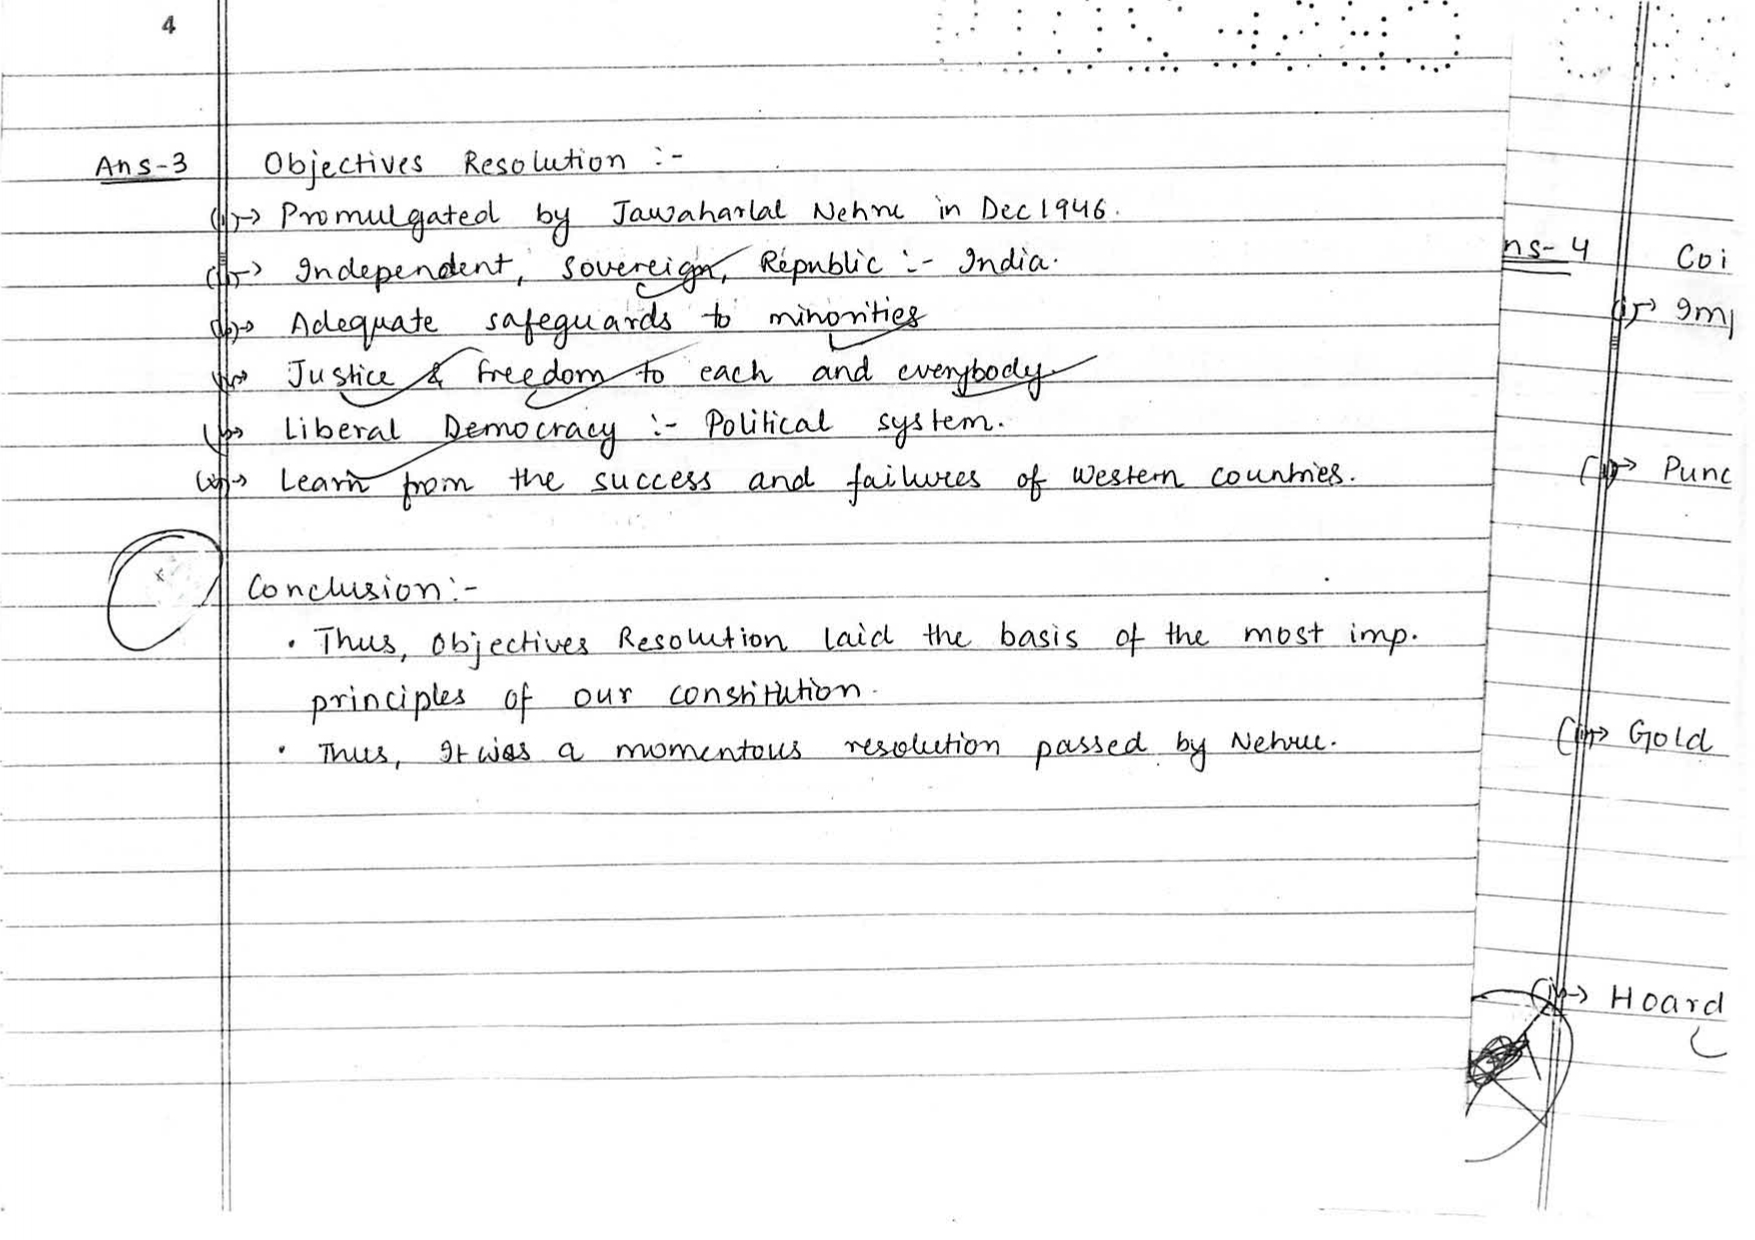 4
Ans-3 Objectives Resolution :-
(i)→ Promulgated by Jawaharlal Nehru in Dec 1946.
(ii)→ Independent, Sovereign, Republic :- India.
(iii)→ Adequate safeguards to minorities
(iv)→ Justice & freedom to each and everybody.
(v)→ Liberal Democracy :- Political system.
(vi)→ Learn from the success and failures of western countries.
Conclusion :-
• Thus, Objectives Resolution laid the basis of the most imp.
principles of our constitution.
• Thus, It was a momentous resolution passed by Nehru.
ns-4 Coi
(i)→ Imp
(ii)→ Punc
(iii)→ Gold
(iv)→ Hoard